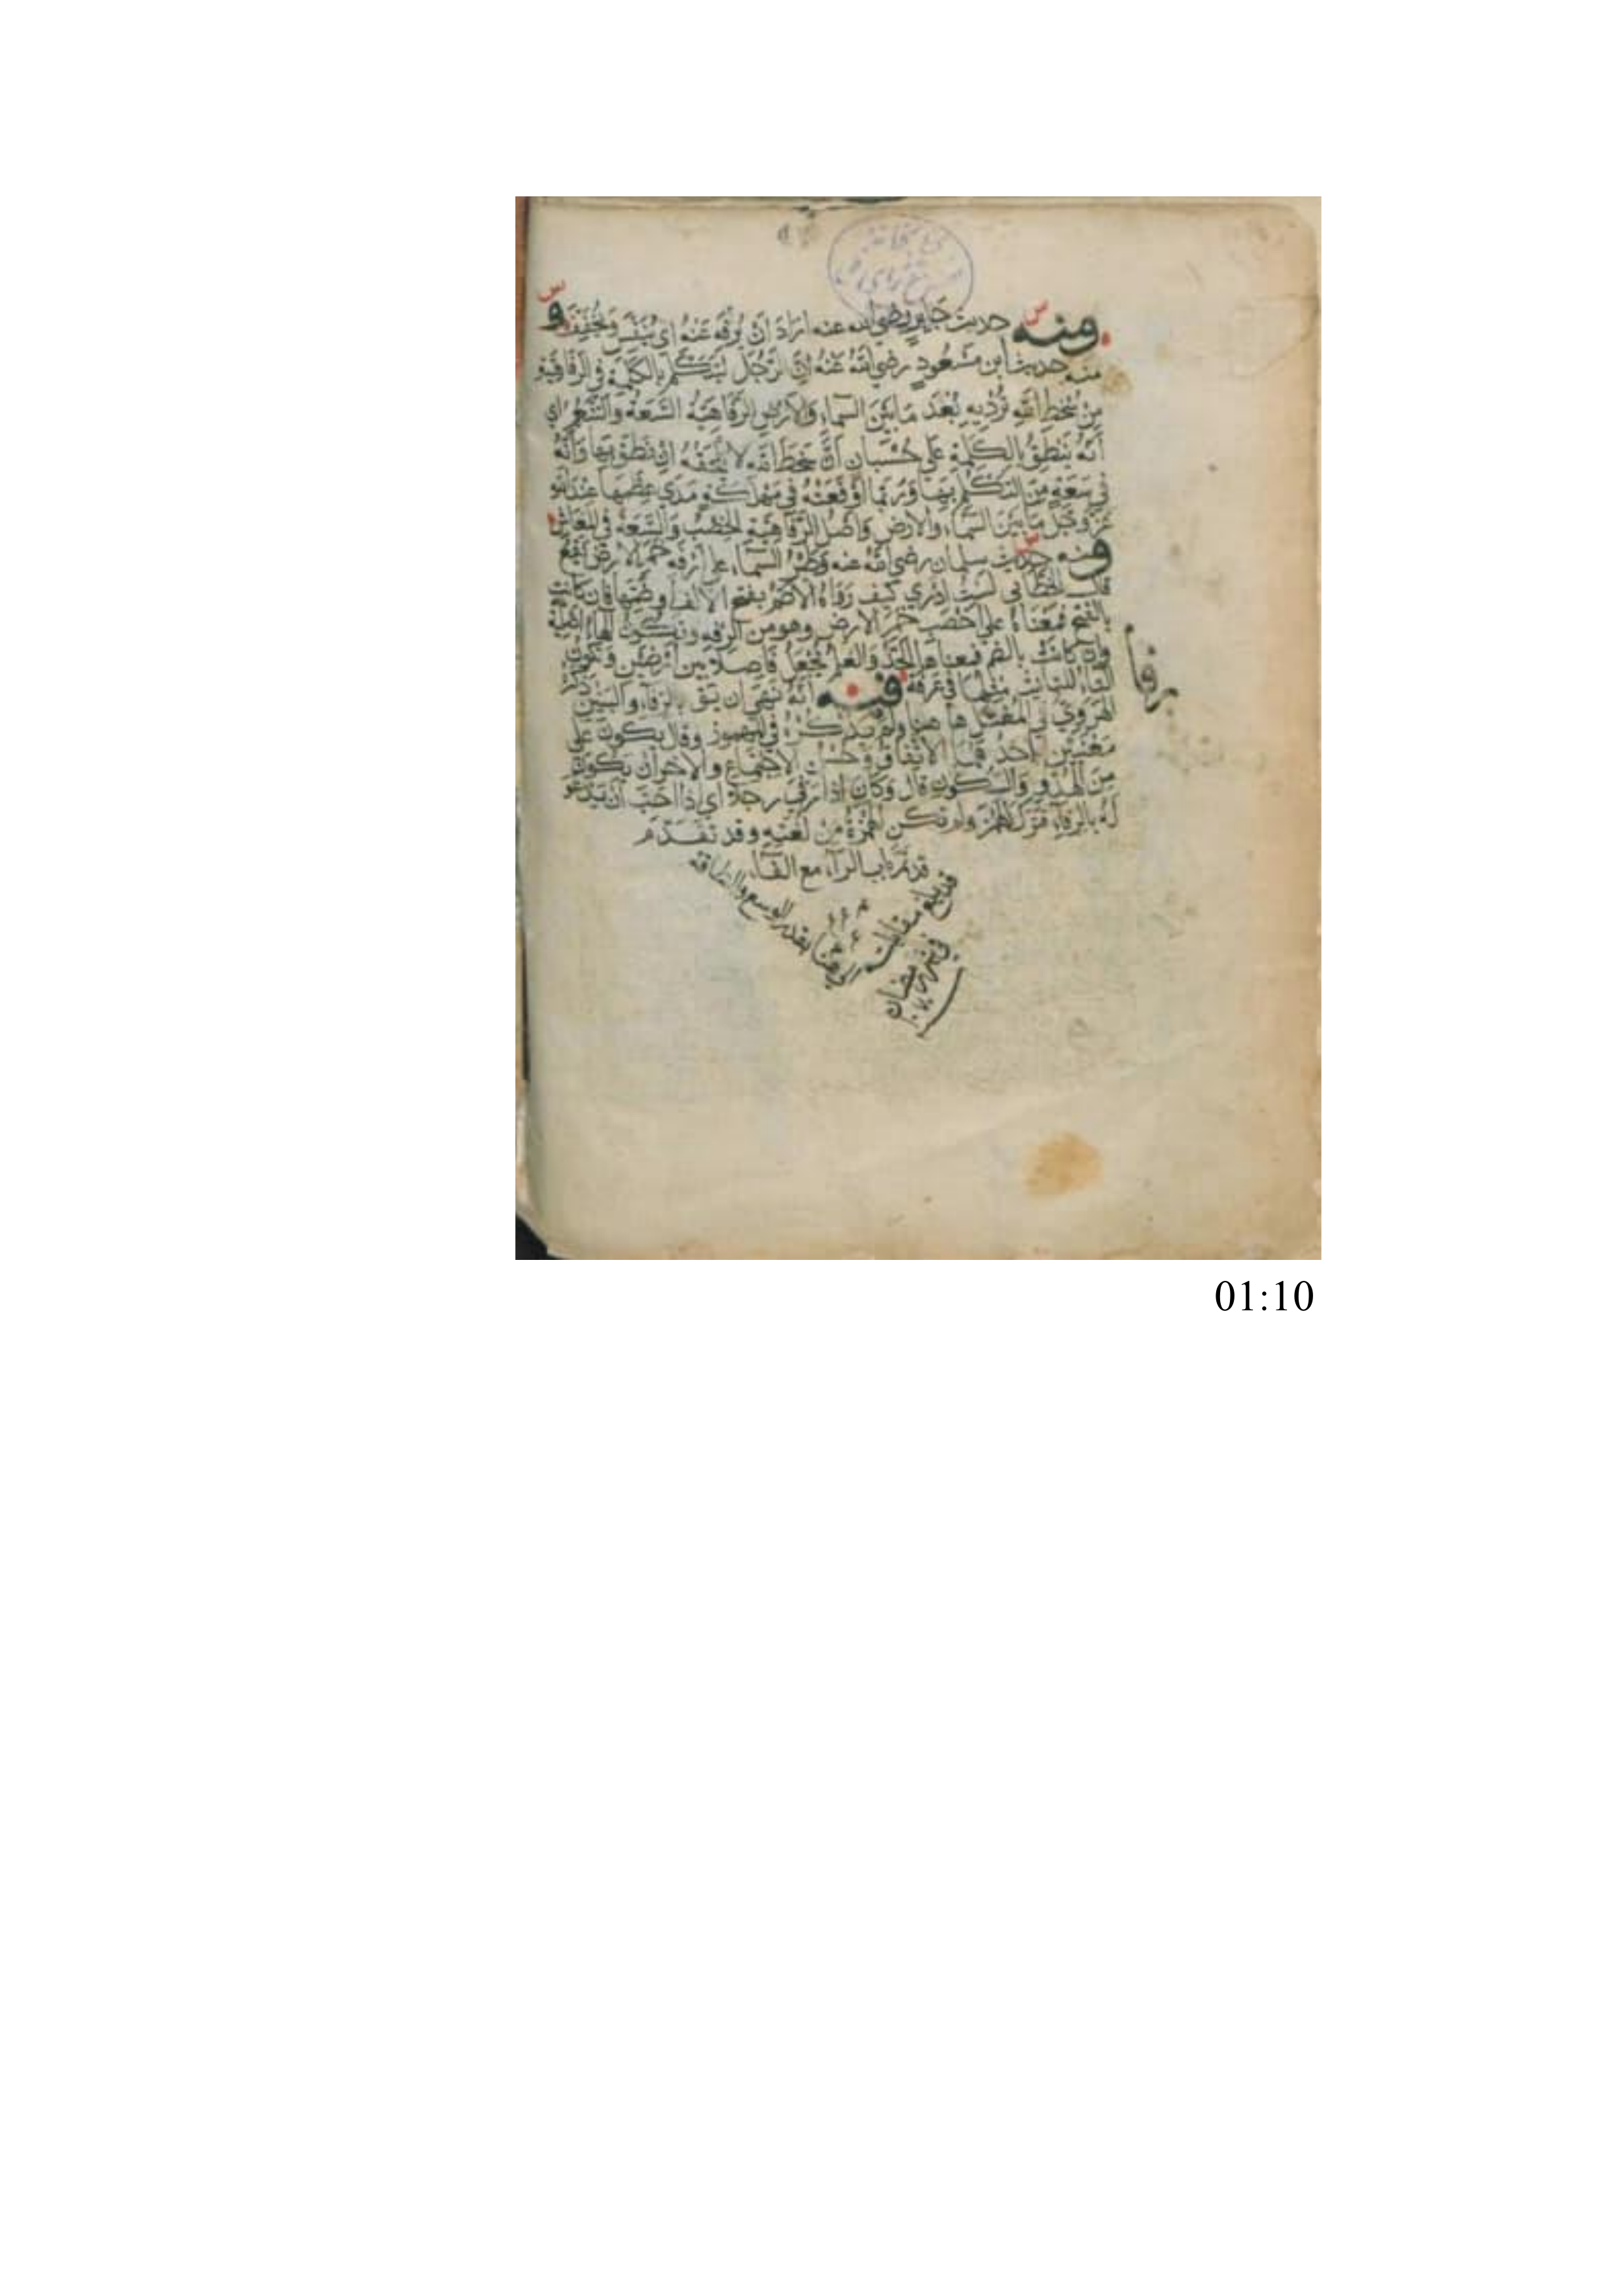 ومنه حديث جابر رضي الله عنه اراد ان يرفه عنه اي ينفس ويخفف و
منه حديث ابن مسعود رضي الله عنه ان الرجل ليتكلم بالكلمة في الرفاهية
من سخط الله ترديه بعد ما بين السماء والارض الرفاهية السعة والتنعم اي
انه ينطق بالكلمة على حسبان ان سخط الله لا يلحقه ان نطق بها وانه
في سعة من التكلم بها وربما اوقعته في مهلكة مدى عظمها عند الله
عز وجل ما بين السماء والارض واصل الرفاهية الخصب والسعة في المعاش
ومنه حديث سلمان رضي الله عنه وطير السماء على ارفه خمر الارض يقع
قال الخطابي لست ادري كيف رواه الاصم بفتح الالف او ضمها فان كانت
بالفتح فمعناه على اخصب خمر الارض وهو من الرفه وتكون الهاء اصلية
وان كانت بالضم فمعناه الحد والعلم يجعل فاصلا بين ارضين وتكون
التاء للتانيث مثلها في غرفة فيه انه نهى ان يق بالرفاء والبنين ذكره
الهروي في المعتل ها هنا ولم يذكره في المهموز وقال يكون على
معنيين احدهما الاتفاق وحسن الاجتماع والاخر ان يكون
من الهدو والسكون قال وكان اذا رفى رجلا اي اذا احب ان يدعو
له بالرفاء فترك الهمز ولم تكن الهمزة من لغته وقد تقدم
رفا
قد تم باب الراء مع الفاء
قد بلغ مقابلته
الى هنا بقدر الوسع والطاقة
في شهر رمضان
01:10